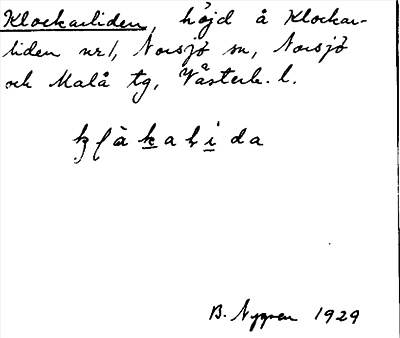 Klockarliden, höjd å Klockar-
liden nr 1, Norsjö sn, Norsjö
och Malå tg, Västerb. l.
B. Nygren 1929